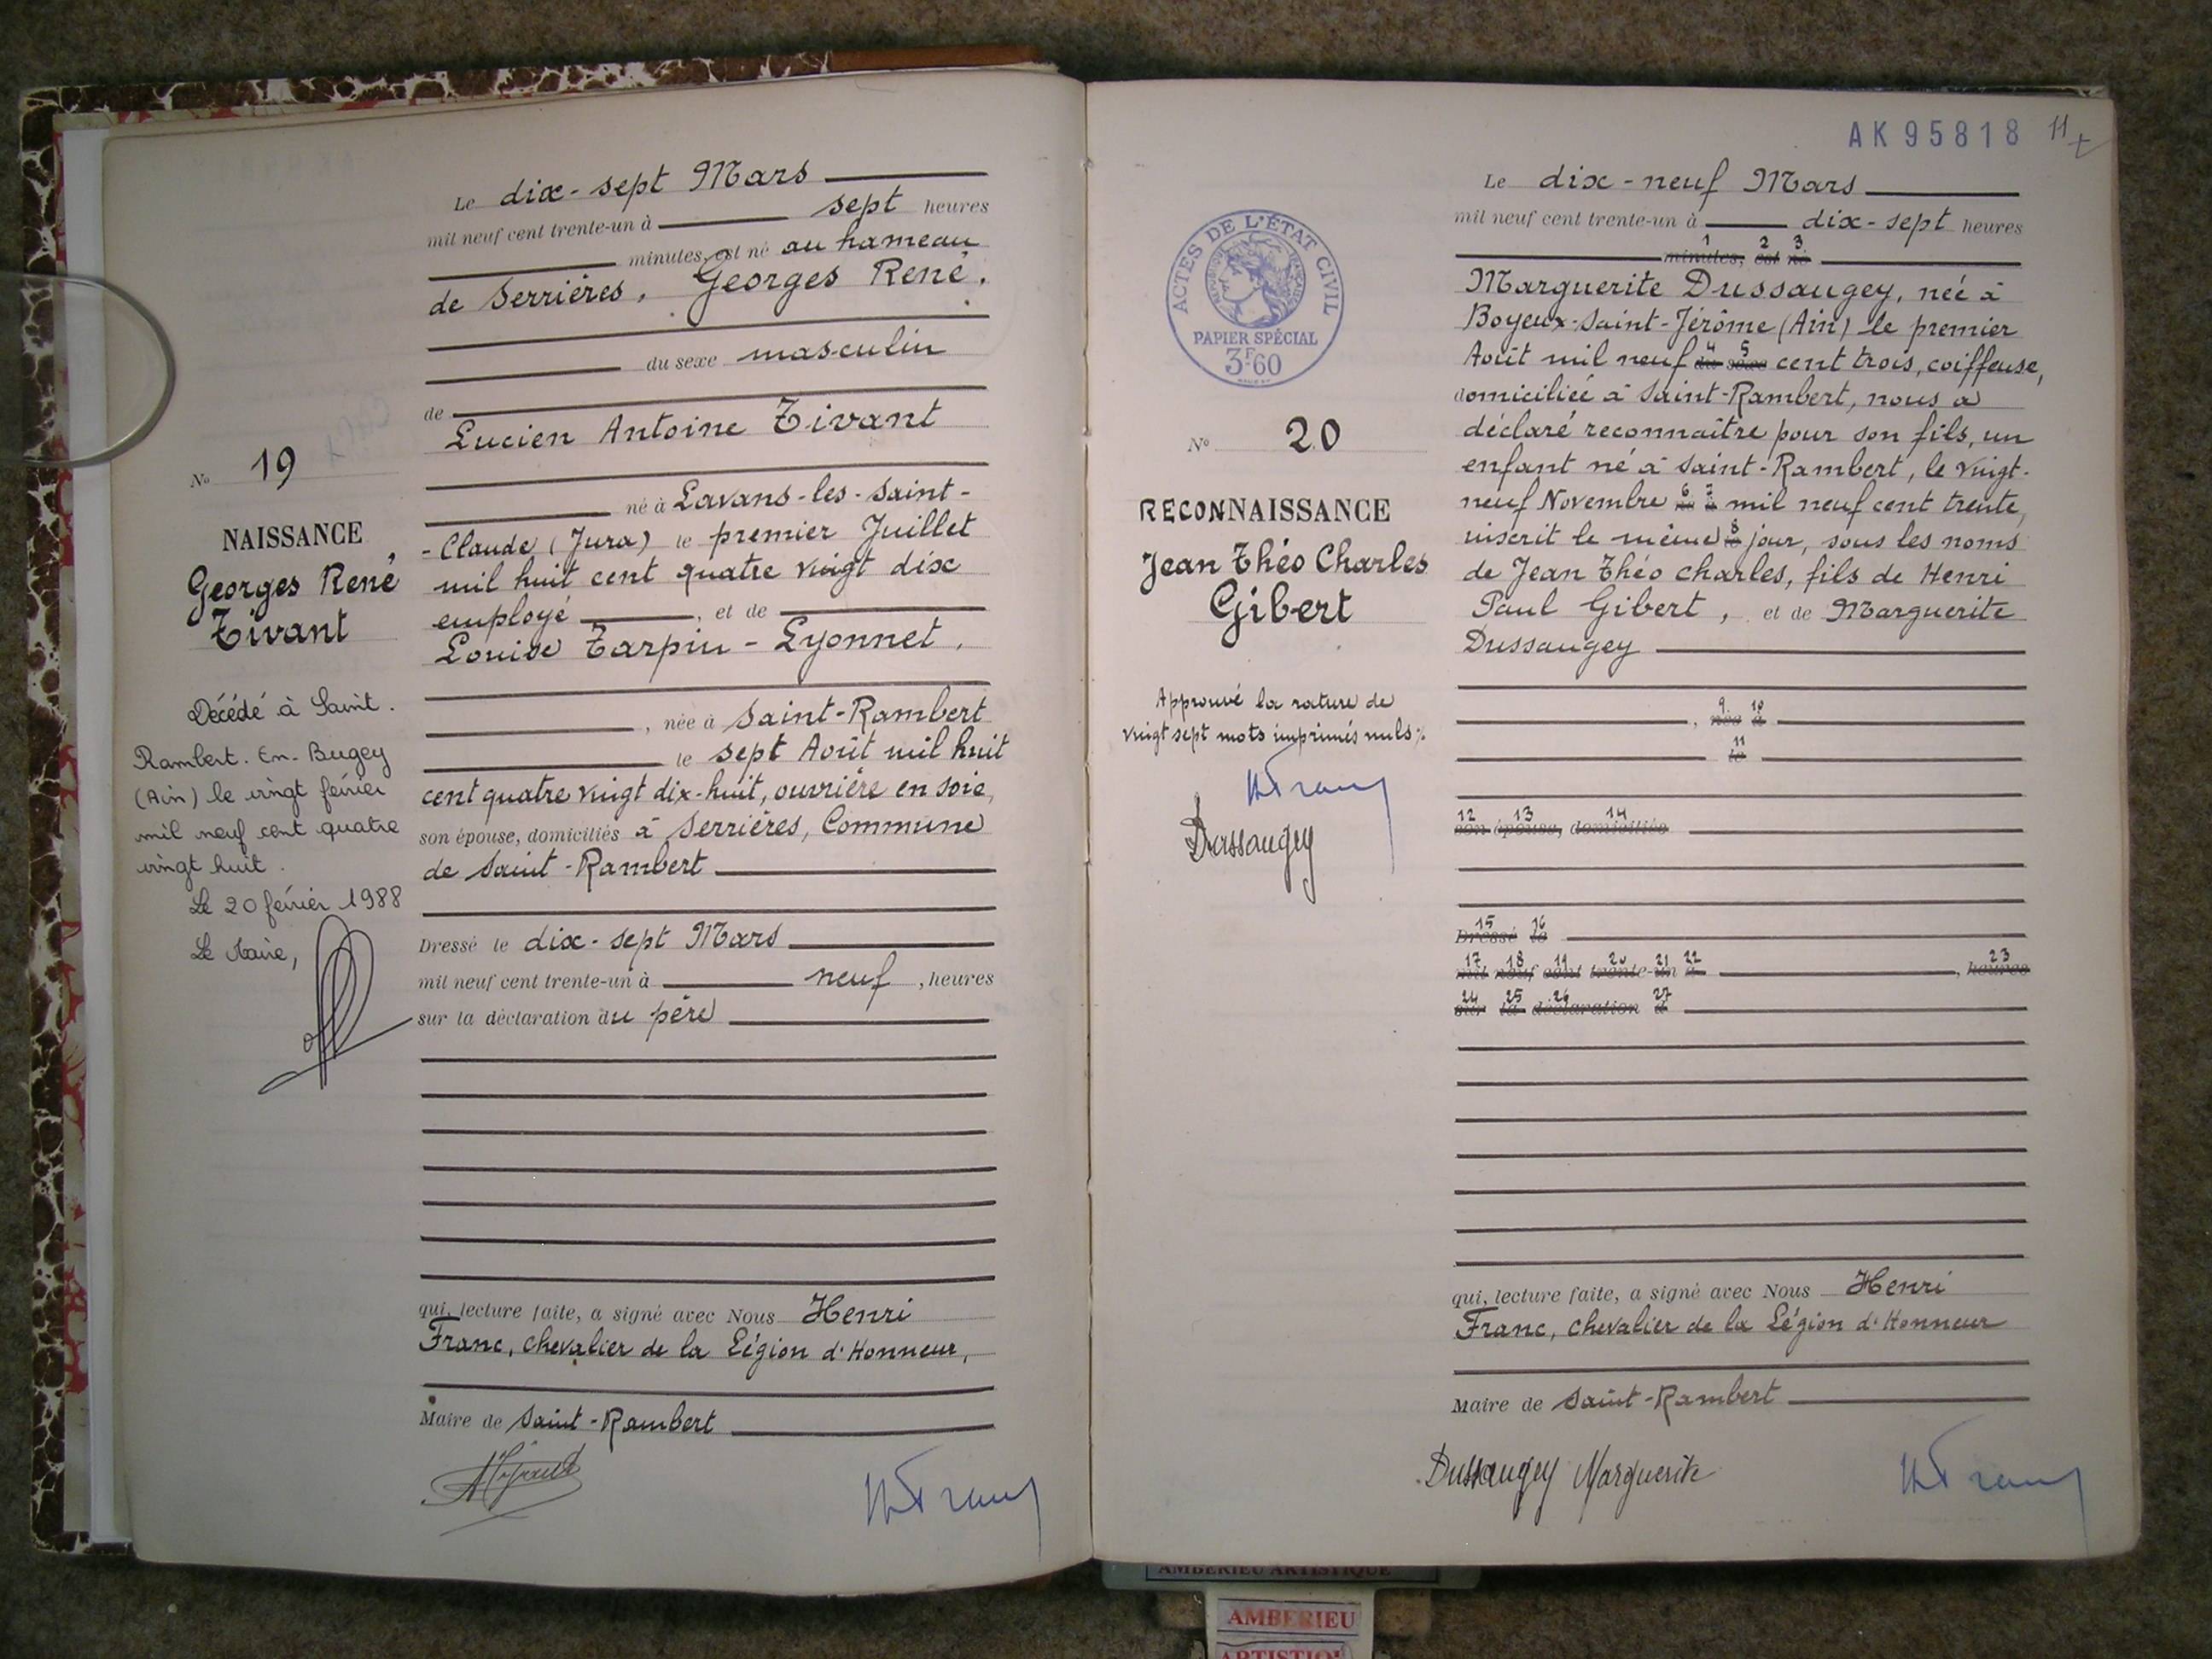 Le dix-sept Mars
mil neuf cent trente-un à sept heures
minutes, est né au hameau
de Serrières, Georges René,
du sexe masculin
de
Lucien Antoine Tivant
né à Lavans-les-Saint-
-Claude (Jura) le premier Juillet
mil huit cent quatre vingt dix
employé, et de
Louise Tarpin-Lyonnet,
, née à Saint-Rambert
le sept Août mil huit
cent quatre vingt dix-huit, ouvrière en soie,
son épouse, domiciliés à Serrières, Commune
de Saint-Rambert
Dressé le dix-sept Mars
mil neuf cent trente-un à neuf, heures
sur la déclaration du père
qui, lecture faite, a signé avec Nous Henri
Franc, chevalier de la Légion d'Honneur,
Maire de Saint-Rambert
No 19
NAISSANCE
Georges René
Tivant
Décédé à Saint.
Rambert. En. Bugey
(Ain) le vingt février
mil neuf cent quatre
vingt huit.
Le 20 février 1988
Le Maire,
AK 95818 11
ACTES DE L'ÉTAT CIVIL
RÉPUBLIQUE FRANÇAISE
PAPIER SPÉCIAL
3F60
No 20
RECONNAISSANCE
Jean Théo Charles
Gibert
Approuvé la rature de
vingt sept mots imprimés nuls
HFranc
Dussaugey
Le dix-neuf Mars
mil neuf cent trente-un à dix-sept heures
1 2 3
minutes, est né
Marguerite Dussaugey, née à
Boyeux-Saint-Jérôme (Ain) le premier
4 5
Août mil neuf du sexe cent trois, coiffeuse,
domiciliée à Saint-Rambert, nous a
déclaré reconnaître pour son fils, un
enfant né à Saint-Rambert, le vingt-
6 7
neuf Novembre né à mil neuf cent trente,
8
inscrit le même le jour, sous les noms
de Jean Théo Charles, fils de Henri
Paul Gibert, et de Marguerite
Dussaugey
9 10
, née à
11
le
12 13 14
son épouse, domiciliés
15 16
Dressé le
17 18 19 20 21 22 23
mil neuf cent trente-un à, heures
24 25 26 27
sur la déclaration d
qui, lecture faite, a signé avec Nous Henri
Franc, chevalier de la Légion d'Honneur
Maire de Saint-Rambert
Dussaugey Marguerite
HFranc
HFranc
AMBERIEU ARTISTIQUE
AMBERIEU
ARTISTIQUE